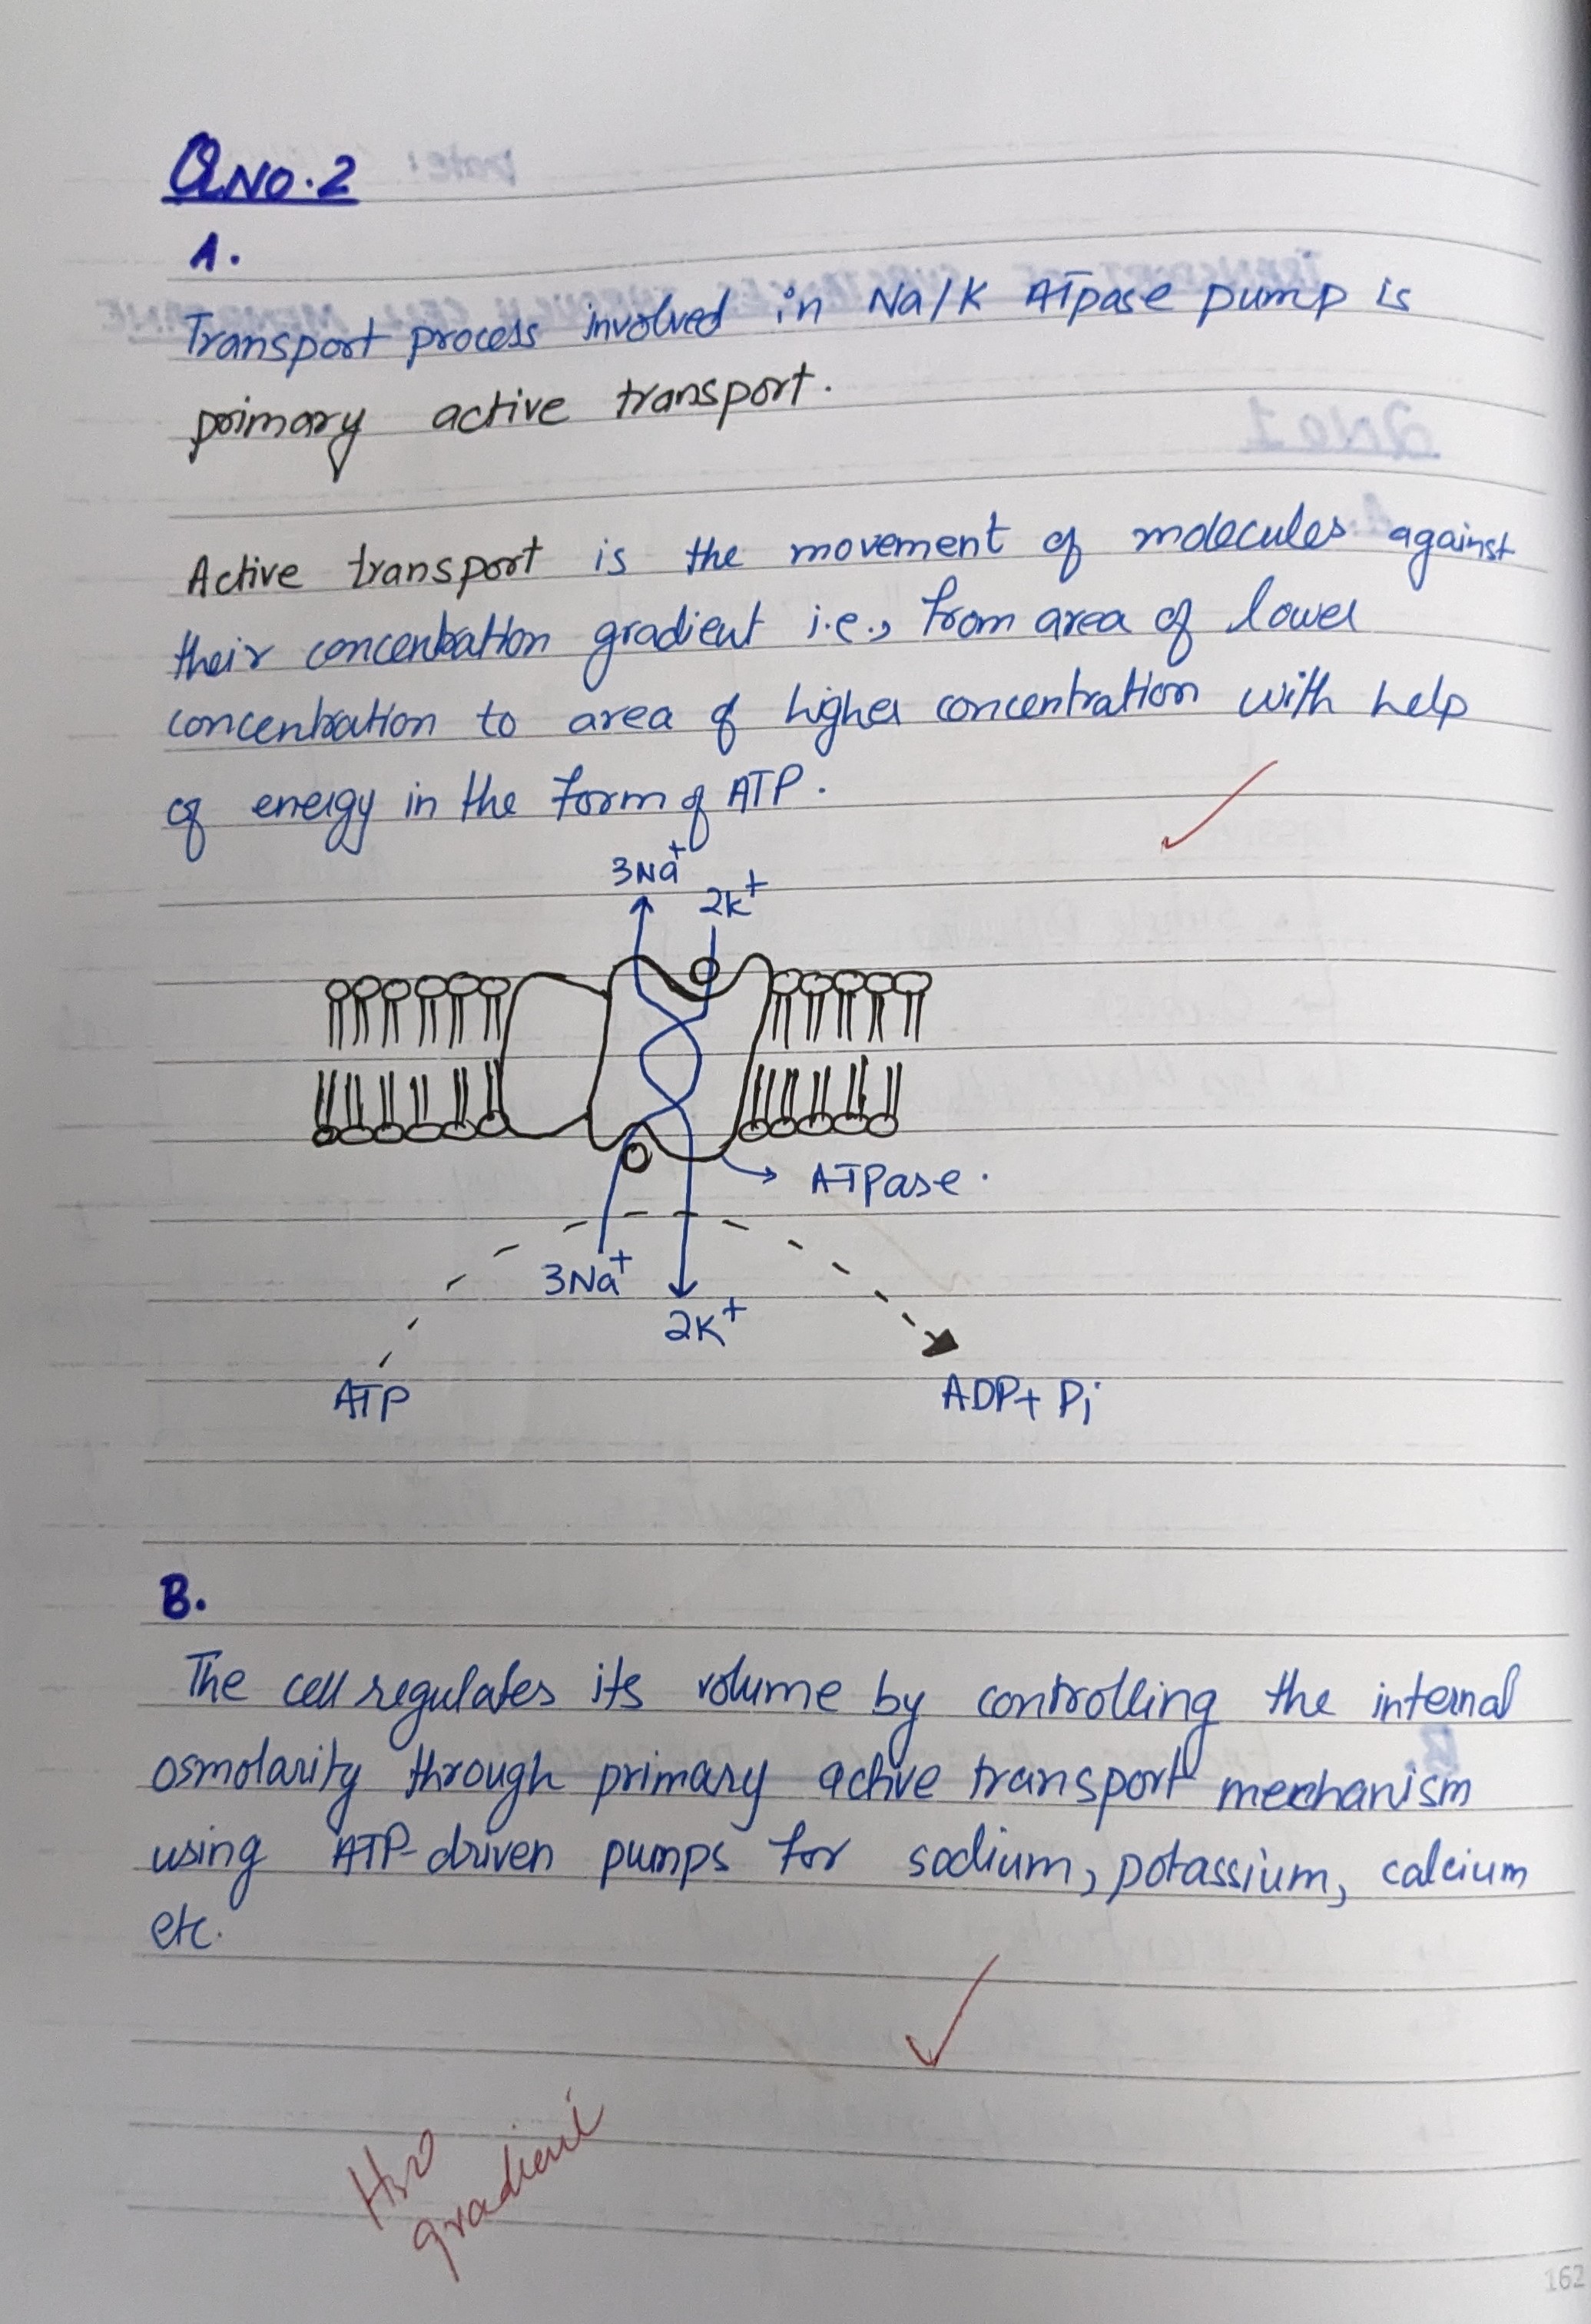 QNO.2
A.
Transport process involved in Na/K ATpase pump is
primary active transport.
Active transport is the movement of molecules against
their concentration gradient i.e., from area of lower
concentration to area of higher concentration with help
of energy in the form of ATP.
3Na⁺
2K⁺
ATPase.
3Na⁺
2K⁺
ATP
ADP + Pi
B.
The cell regulates its volume by controlling the internal
osmolarity through primary active transport mechanism
using ATP-driven pumps for sodium, potassium, calcium
etc.
H₂O
gradient
162